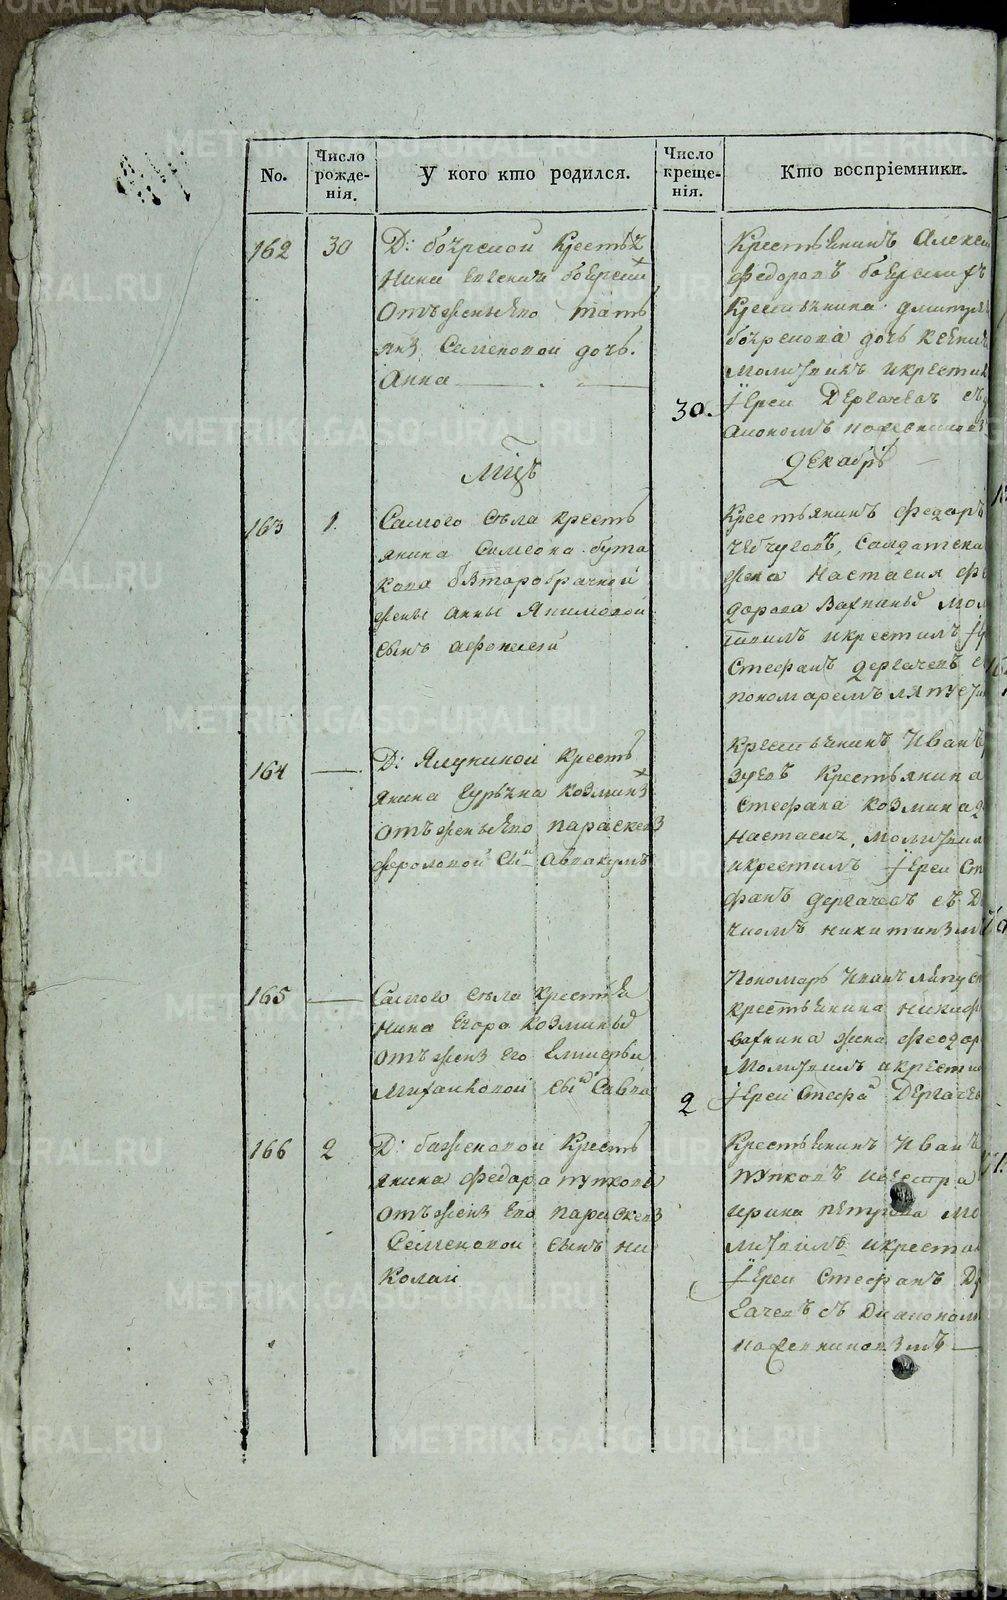 No.
Число рожде- нія.
У кого кто родился.
Число креще- нія.
Кто воспріемники.
162
30
Д: боярской крестья
нина Евгения боярски
отъ жены его Тать
яны Семеновой дочь
Анна
30.
крестьянинъ Алексе
Федоровъ боярскихъ
крестьянина Дмитрея
боярскова дочь
молитвилъ и крестил
Іерей Дергачевъ съ
диакономъ
мцъ
Декабрь
163
1.
Самого села кресть
янина Симеона Бута
кова второбрачной
жены Анны Якимовой
сынъ Афонасей
крестьянинъ Федоръ
Чебчуговъ, салдатска
жена Настасия Фе
дорова Вахниныхъ мол
твилъ и крестилъ
Стефанъ Дергачевъ с
пономаремъ
164
Д: Ялуниной кресть
янина Гурьяна Козмина
отъ жены его Параскев
Фроловой сынъ Аввакумъ
крестьянинъ Иванъ
Зуевъ крестьянина
Стефана Козмина
Настасия, молитвил
и крестилъ Іерей Сте
фанъ Дергачевъ съ Д
чкомъ Никитинымъ
165
Самого села крестья
нина Егора Козминых
отъ жены его Гликерьи
Михайловой сынъ Савва
2
Пономарь Иванъ Ляпус
крестьянина Никиф
Вахнина жена Федор
молитвилъ и крестил
Іерей Стефанъ Дергачев
166
2
Д: баженовой кресть
янина Федора Пупковы
отъ жены его Параскевы
Семеновой сынъ Ни
колай
крестьянинъ Иванъ
Пупковъ и сестра
Ирина Петрова мо
литвилъ и крестил
Іерей Стефанъ Де
гачевъ съ Диакономъ